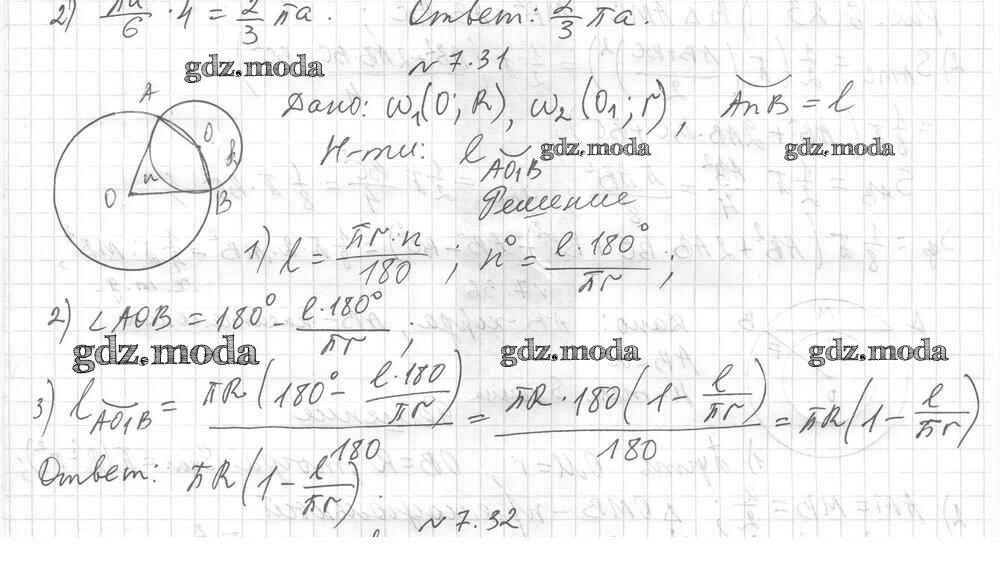 2) πa/6 · 4 = 2/3 πa. Ответ: 2/3 πa.
gdz.moda
N 7.31
Дано: ω₁(O; R), ω₂(O₁; r), AnB = l
Н-ти: l AO₁B
gdz.moda gdz.moda
Решение
A
O
B
O
n
1) l = πr·n/180 ; n° = l·180°/πr ;
2) ∠AOB = 180° - l·180°/πr ;
gdz.moda gdz.moda gdz.moda
3) l AO₁B = πR(180° - l·180/πr)/180 = πR·180(1 - l/πr)/180 = πR(1 - l/πr)
Ответ: πR(1 - l/πr).
N 7.32